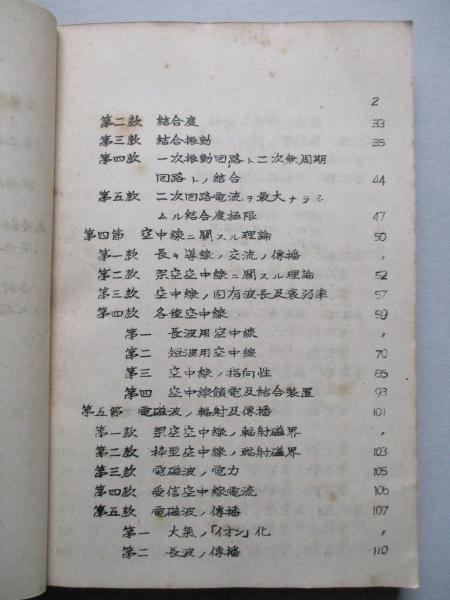 2
第二款 結合度 33
第三款 結合振動 35
第四款 一次振動回路ト二次無周期
回路トノ結合 44
第五款 二次回路電流ヲ最大ナラシ
ムル結合度極限 47
第四節 空中線ニ關スル理論 50
第一款 長キ導線ノ交流ノ傳播 〃
第二款 架空空中線ニ關スル理論 52
第三款 空中線ノ固有波長及衰弱率 57
第四款 各種空中線 59
第一 長波用空中線 〃
第二 短波用空中線 70
第三 空中線ノ指向性 85
第四 空中線饋電及結合裝置 93
第五節 電磁波ノ輻射及傳播 101
第一款 架空空中線ノ輻射磁界 〃
第二款 枠型空中線ノ輻射磁界 103
第三款 電磁波ノ電力 105
第四款 受信空中線電流 106
第五款 電磁波ノ傳播 107
第一 大氣ノ「イオン」化 〃
第二 長波ノ傳播 110